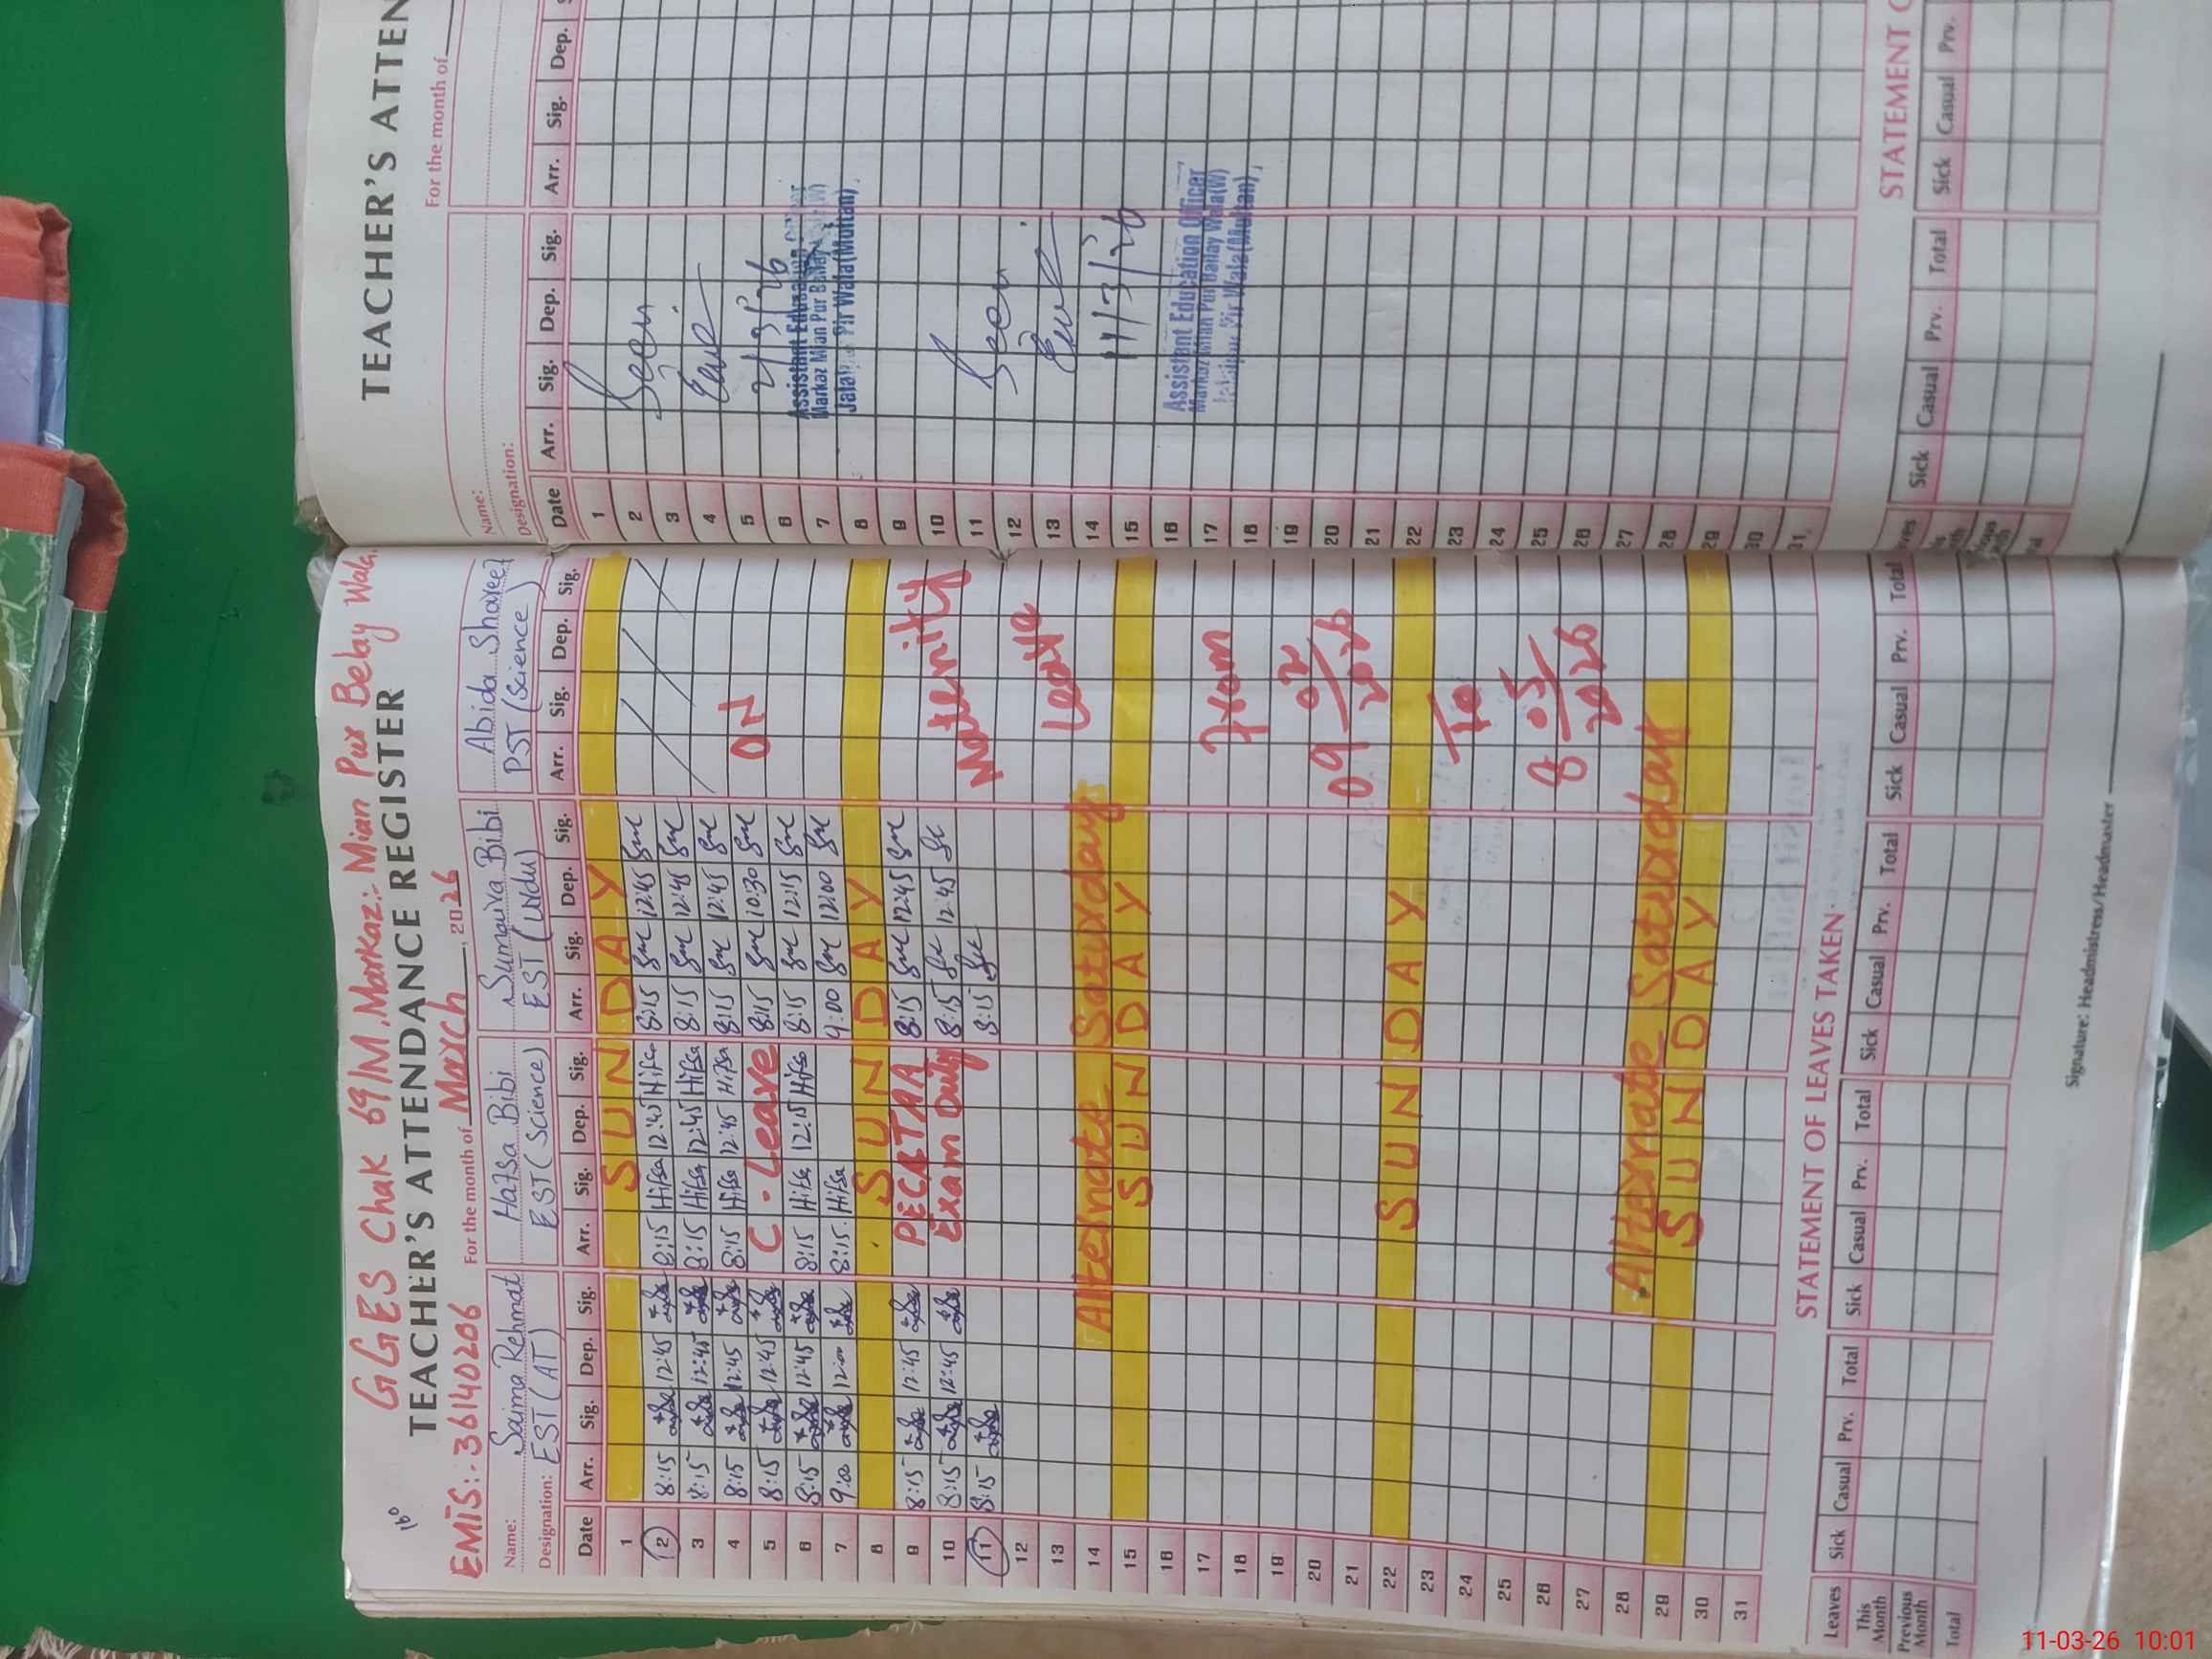 16°
GGES Chak 69/M, Markaz:- Mian Pur Belay Wala
TEACHER'S ATTENDANCE REGISTER
EMIS:-36140206 For the month of March, 2026
Name: Saima Rehmat Hafsa Bibi Sumaira Bibi Abida Shareef
Designation: EST (AT) EST (Science) EST (Urdu) PST (Science)
Date Arr. Sig. Dep. Sig. Arr. Sig. Dep. Sig. Arr. Sig. Dep. Sig. Arr. Sig. Dep. Sig.
1 SUNDAY
2 8:15 12:45 8:15 Hifsa 12:45 Hifsa 8:15 12:45
3 8:15 12:45 8:15 Hifsa 12:45 Hifsa 8:15 12:45
4 8:15 12:45 8:15 Hifsa 12:45 Hifsa 8:15 12:45
5 8:15 12:45 C-Leave 8:15 10:30 ON
6 8:15 12:45 8:15 Hifsa 12:15 Hifsa 8:15 12:15
7 9:00 12:00 8:15 Hifsa 9:00 12:00
8 SUNDAY
9 8:15 12:45 PECTAA 8:15 12:45
10 8:15 12:45 Exam Duty 8:15 12:45 Maternity
11 8:15 8:15
12 Leave
13
14 Alternate Saturday
15 SUNDAY
16
17 From
18
19
20 09/02/2026
21
22 SUNDAY
23 To
24
25
26 8/05/2026
27
28 Alternate Saturday
29 SUNDAY
30
31
STATEMENT OF LEAVES TAKEN
Leaves Sick Casual Prv. Total Sick Casual Prv. Total Sick Casual Prv. Total Sick Casual Prv. Total
This Month
Previous Month
Total
Signature: Headmistress/Headmaster
TEACHER'S ATTEN
For the month of
Name:
Designation:
Date Arr. Sig. Dep. Sig. Arr. Sig. Dep.
1
2 Seen
3
4
5 2/3/26
6 Assistant Education Officer
7 Markaz Mian Pur Bailay Wala(W)
8 Jalalpur Pir Wala(Multan)
9
10
11 Seen
12
13
14
15 11/3/26
16 Assistant Education Officer
17 Markaz Mian Pur Bailay Wala(W)
18 Jalalpur Pir Wala(Multan)
19
20
21
22
23
24
25
26
27
28
29
30
31
STATEMENT O
Sick Casual Prv. Total Sick Casual Prv.
11-03-26 10:01